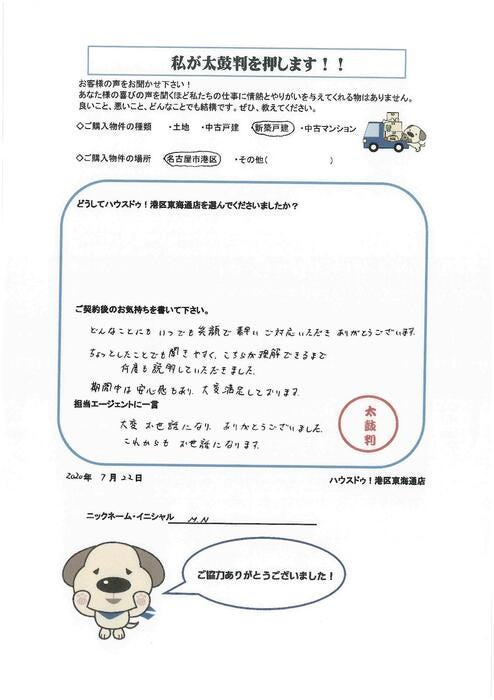 私が太鼓判を押します！！
お客様の声をお聞かせ下さい！
あなた様の喜びの声を聞くほど私たちの仕事に情熱とやりがいを与えてくれる物はありません。
良いこと、悪いこと、どんなことでも結構です。ぜひ、教えてください。
◇ご購入物件の種類　・土地　・中古戸建　・新築戸建　・中古マンション
◇ご購入物件の場所　・名古屋市港区　・その他(　　　　)
どうしてハウスドゥ！港区東海通店を選んでくださいましたか？
ご契約後のお気持ちを書いて下さい。
どんなことにも いつでも笑顔で 素早い ご対応いただき ありがとうございます。
ちょっとしたことでも聞きやすく、こちらが理解できるまで
何度も説明していただきました。
期間中は安心感もあり、大変満足しております。
担当エージェントに一言
大変 お世話になり、ありがとうございました。
これからも お世話になります。
太鼓判
2020年 7月 22日
ハウスドゥ！港区東海通店
ニックネーム・イニシャル M.N
ご協力ありがとうございました！